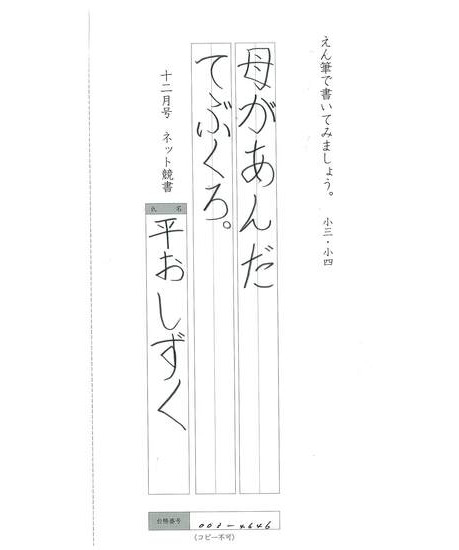 えん筆で書いてみましょう。 小三・小四
母があんだ
てぶくろ。
十二月号 ネット競書
氏名
平おしずく
台帳番号 008-4646
(コピー不可)